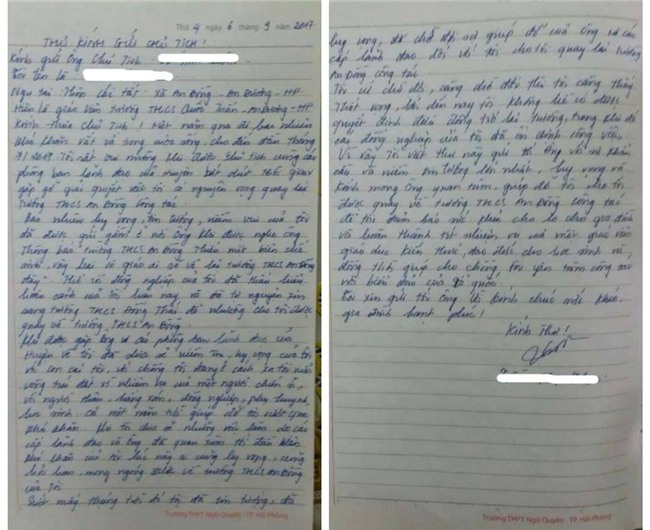 Thứ 4 ngày 6 tháng 9 năm 2017
THƯ KÍNH GỬI CHỦ TỊCH!
Kính gửi Ông Chủ Tịch
Tôi tên là
Ngụ tại Thôn xã An Đồng - An Dương - HP
Hiện là giáo viên Trường THCS Quốc Tuấn - An Dương - HP
Kính thưa Chủ Tịch! Một năm qua đi bao nhiêu
khó khăn vất vả trong cuộc sống cho đến tháng
7/2017 Tôi rất vui mừng khi được Chủ tịch cùng các
phòng ban lãnh đạo của Huyện
gặp gỡ giải quyết với tôi có nguyện vọng quay lại
trường THCS An Đồng công tác.
Bao nhiêu hy vọng, tin tưởng, niềm vui của tôi
đã được gửi gắm ở nơi Ông khi được nghe Ông
Thông báo trường THCS An Đồng Thiếu một biên chế
về lại trường THCS An Đồng
đây. đồng nghiệp của tôi đã thấu hiểu
hoàn cảnh của tôi lúc này và đã tự nguyện xin
sang trường THCS Hồng Thái để nhường cho tôi được
quay về trường THCS An Đồng.
Khi được gặp Ông và các phòng ban lãnh đạo của
Huyện về tôi đã niềm tin, hy vọng của tôi
và con cái tôi, vì chồng tôi đang ở cách xa tôi nửa
vòng trái đất vì nhiệm vụ của một người chiến sĩ,
với người thân, hàng xóm, đồng nghiệp, phụ huynh,
học sinh cả một năm trời giúp đỡ tôi vượt qua
khó khăn. Khi tôi chia sẻ những điều do các
cấp lãnh đạo và Ông đã quan tâm tới
khó khăn của tôi lúc này ai cũng hy vọng, cũng
mong ngóng về trường THCS An Đồng
của Tôi
Suốt mấy tháng trời đó tôi đã tin tưởng, đã
Trường THPT Ngô Quyền - TP. Hải Phòng
hy vọng, đã chờ đợi sự giúp đỡ của Ông và các
cấp lãnh đạo đối với tôi cho tôi quay lại trường
An Đồng công tác.
Tôi cứ chờ đợi, càng chờ đợi thì tôi càng thấy
thất vọng, bởi đến nay tôi không hề có được
quyết định điều động trở lại trường, trong khi đó
các đồng nghiệp của tôi đã ổn định công việc.
Vì vậy Tôi viết thư này gửi tới Ông với
cầu và niềm tin tưởng lớn nhất, hy vọng và
kính mong Ông quan tâm, giúp đỡ tôi cho tôi
được quay về trường THCS An Đồng công tác
để tôi đảm bảo cho gia đình
và hoàn thành trách nhiệm, của một giáo viên
giáo dục kiến thức, đạo đức cho học sinh và,
đồng thời giúp cho chồng tôi yên tâm công tác
nơi biển đảo của Tổ quốc.
Tôi xin gửi tới ông lời kính chúc sức khỏe,
gia đình hạnh phúc!
Kính Thư!
Trường THPT Ngô Quyền - TP. Hải Phòng